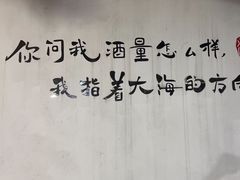 你问我酒量怎么样，
我指着大海的方向